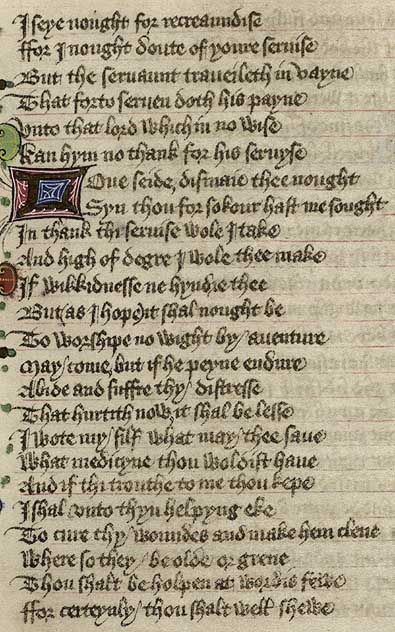 I seye nought for recreaundise
Ffor I nought doute of youre seruise
But the seruaunt traueileth in vayne
That forto seruen doth his payne
Vnto that lord which in no wise
Kan hym no thank for his seruyse
Loue seide, dismaie thee nought
Syn thou for sokour hast me sought
In thank thi seruise wole I take
And high of degre I wole thee make
If wikkidnesse ne hyndre thee
But (as I hope) it shal nought be
To worshipe no wight by auenture
May come, but if he peyne endure
Abide and suffre thy distresse
That hurtith now it shal be lesse
I wote my silf what may thee saue
What medicyne thou woldist haue
And if thi trouthe to me thou kepe
I shal vnto thyn helpyng eke
To cure thy woundes and make hem clene
Where so they be olde or grene
Thou shalt be holpen at wordis fewe
Ffor certeynly thou shalt well shewe